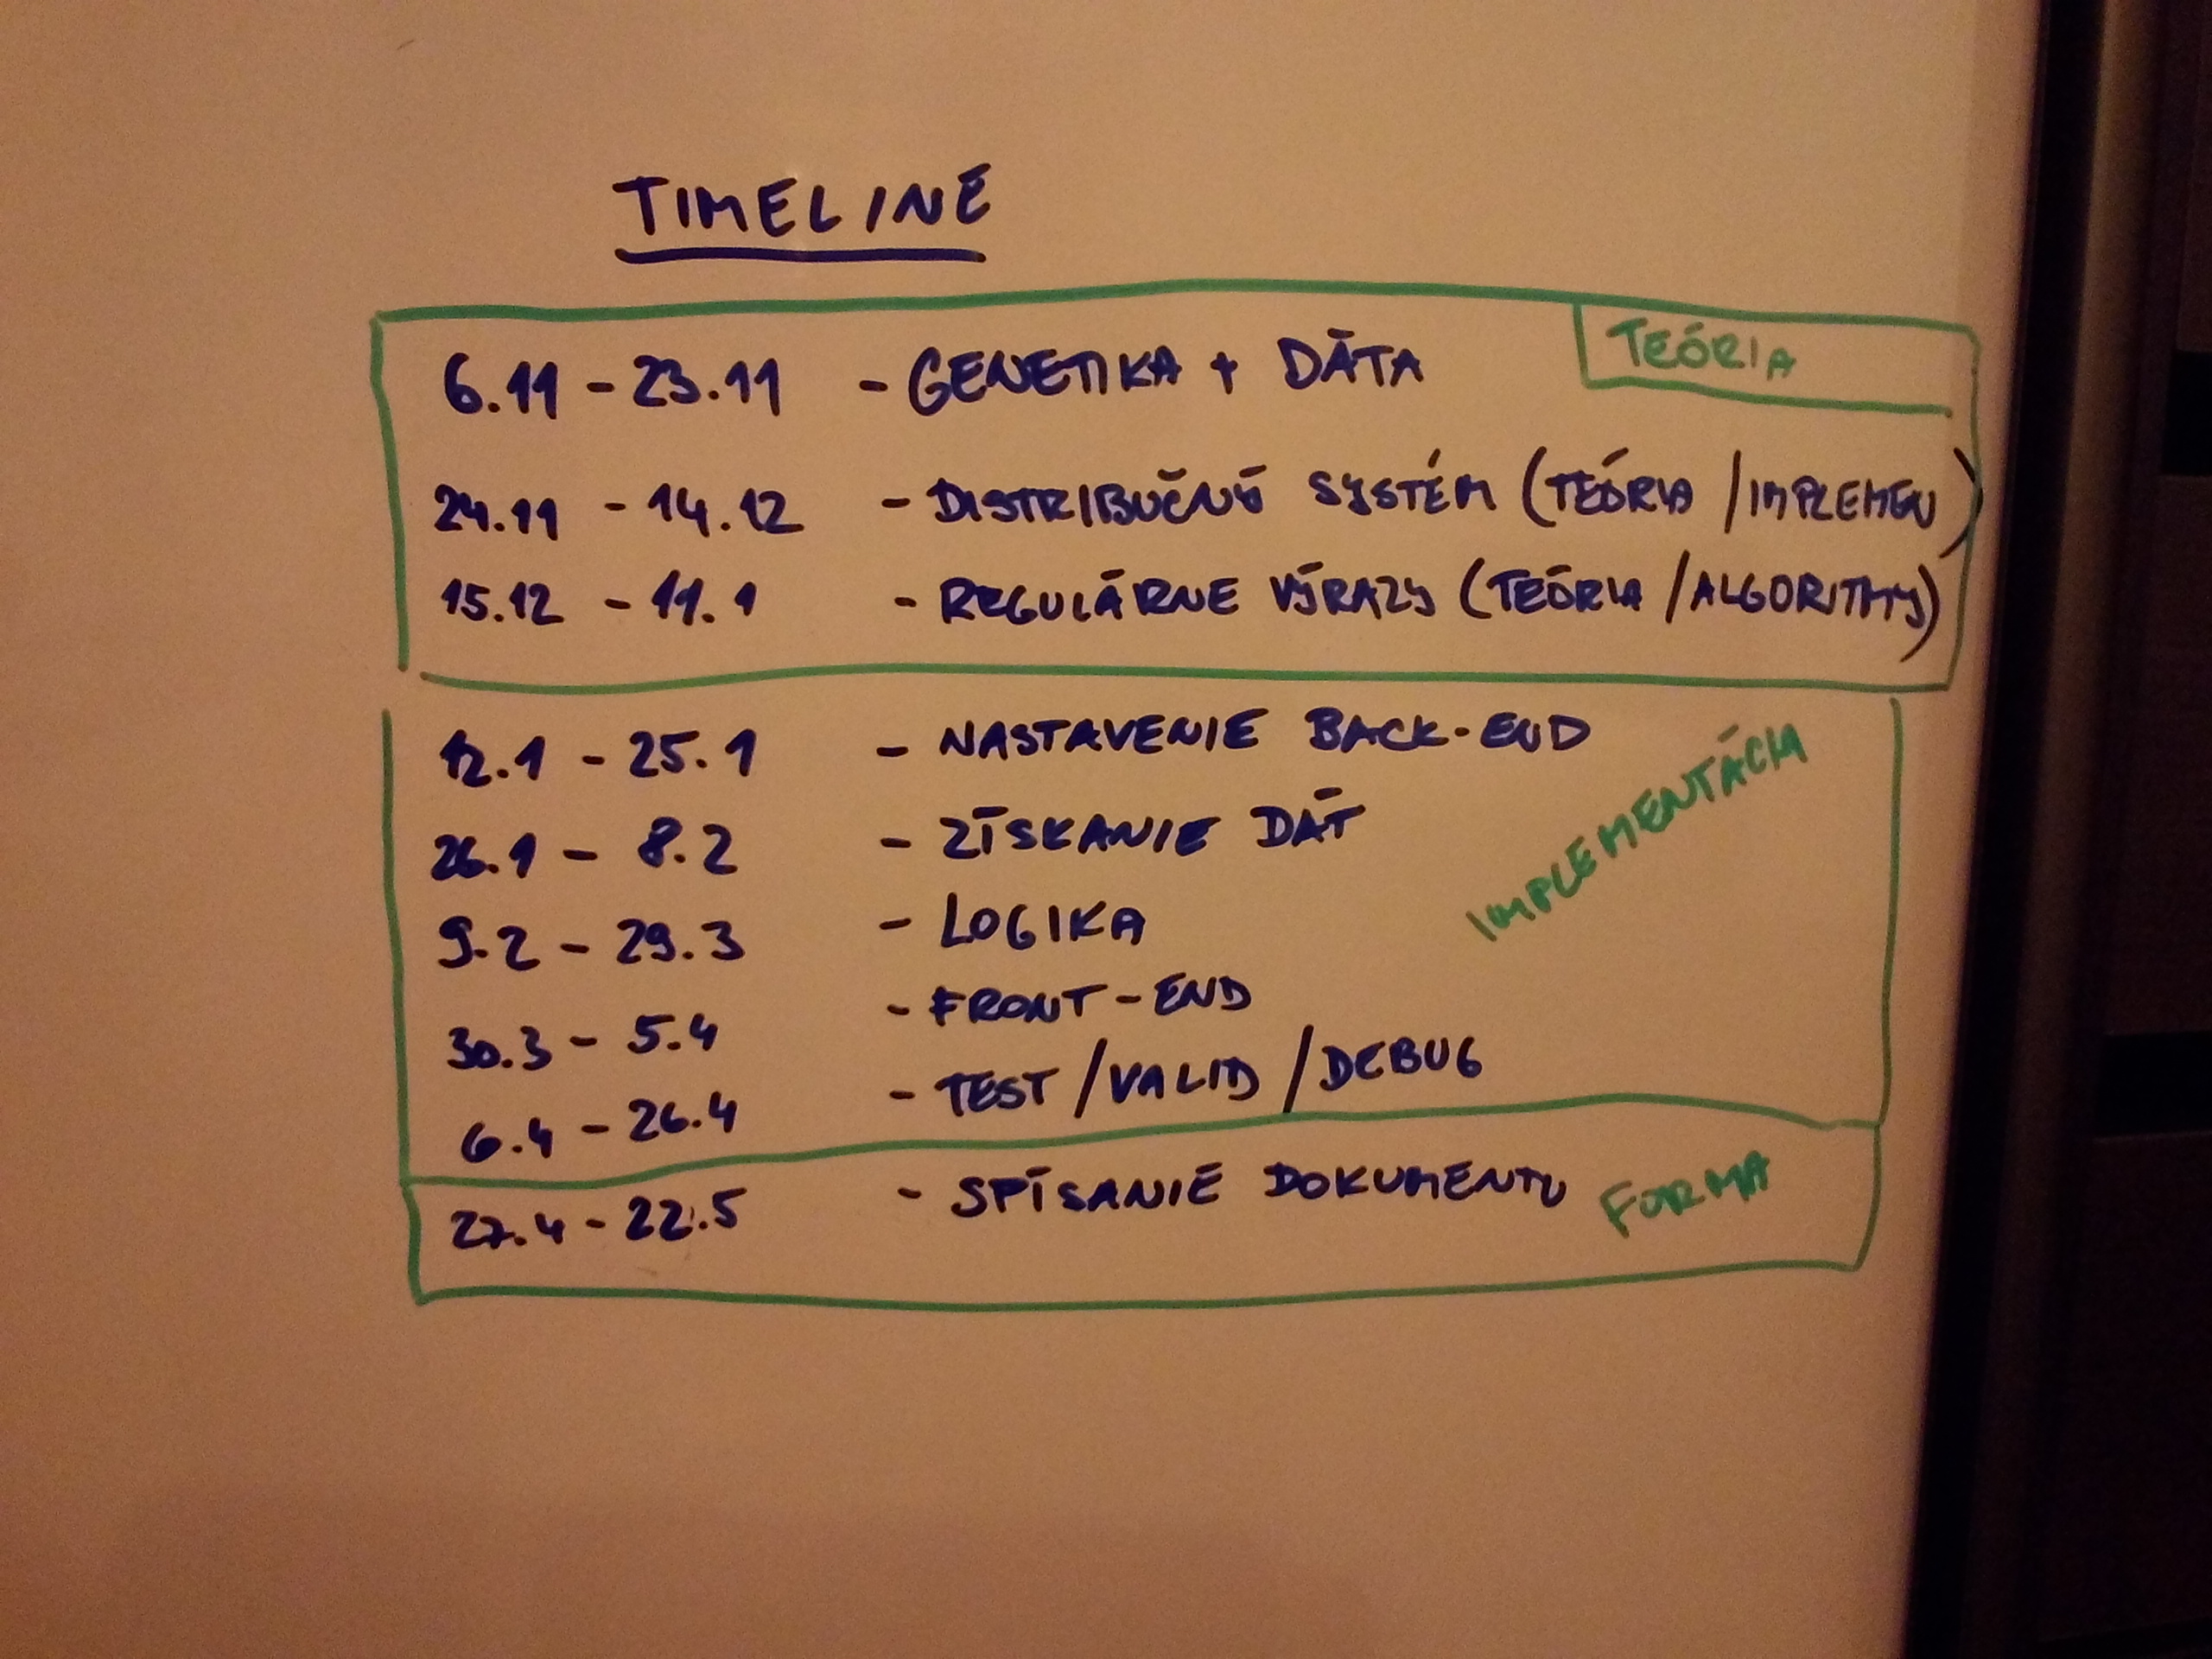 TIMELINE
TEÓRIA
6.11 - 23.11 - GENETIKA + DÁTA
24.11 - 14.12 - DISTRIBUČNÝ SYSTÉM (TEÓRIA / IMPLEMEN)
15.12 - 11.1 - REGULÁRNE VÝRAZY (TEÓRIA / ALGORITMY)
12.1 - 25.1 - NASTAVENIE BACK-END
IMPLEMENTÁCIA
26.1 - 8.2 - ZÍSKANIE DÁT
9.2 - 29.3 - LOGIKA
30.3 - 5.4 - FRONT-END
6.4 - 26.4 - TEST / VALID / DEBUG
27.4 - 22.5 - SPÍSANIE DOKUMENTU
FORMA